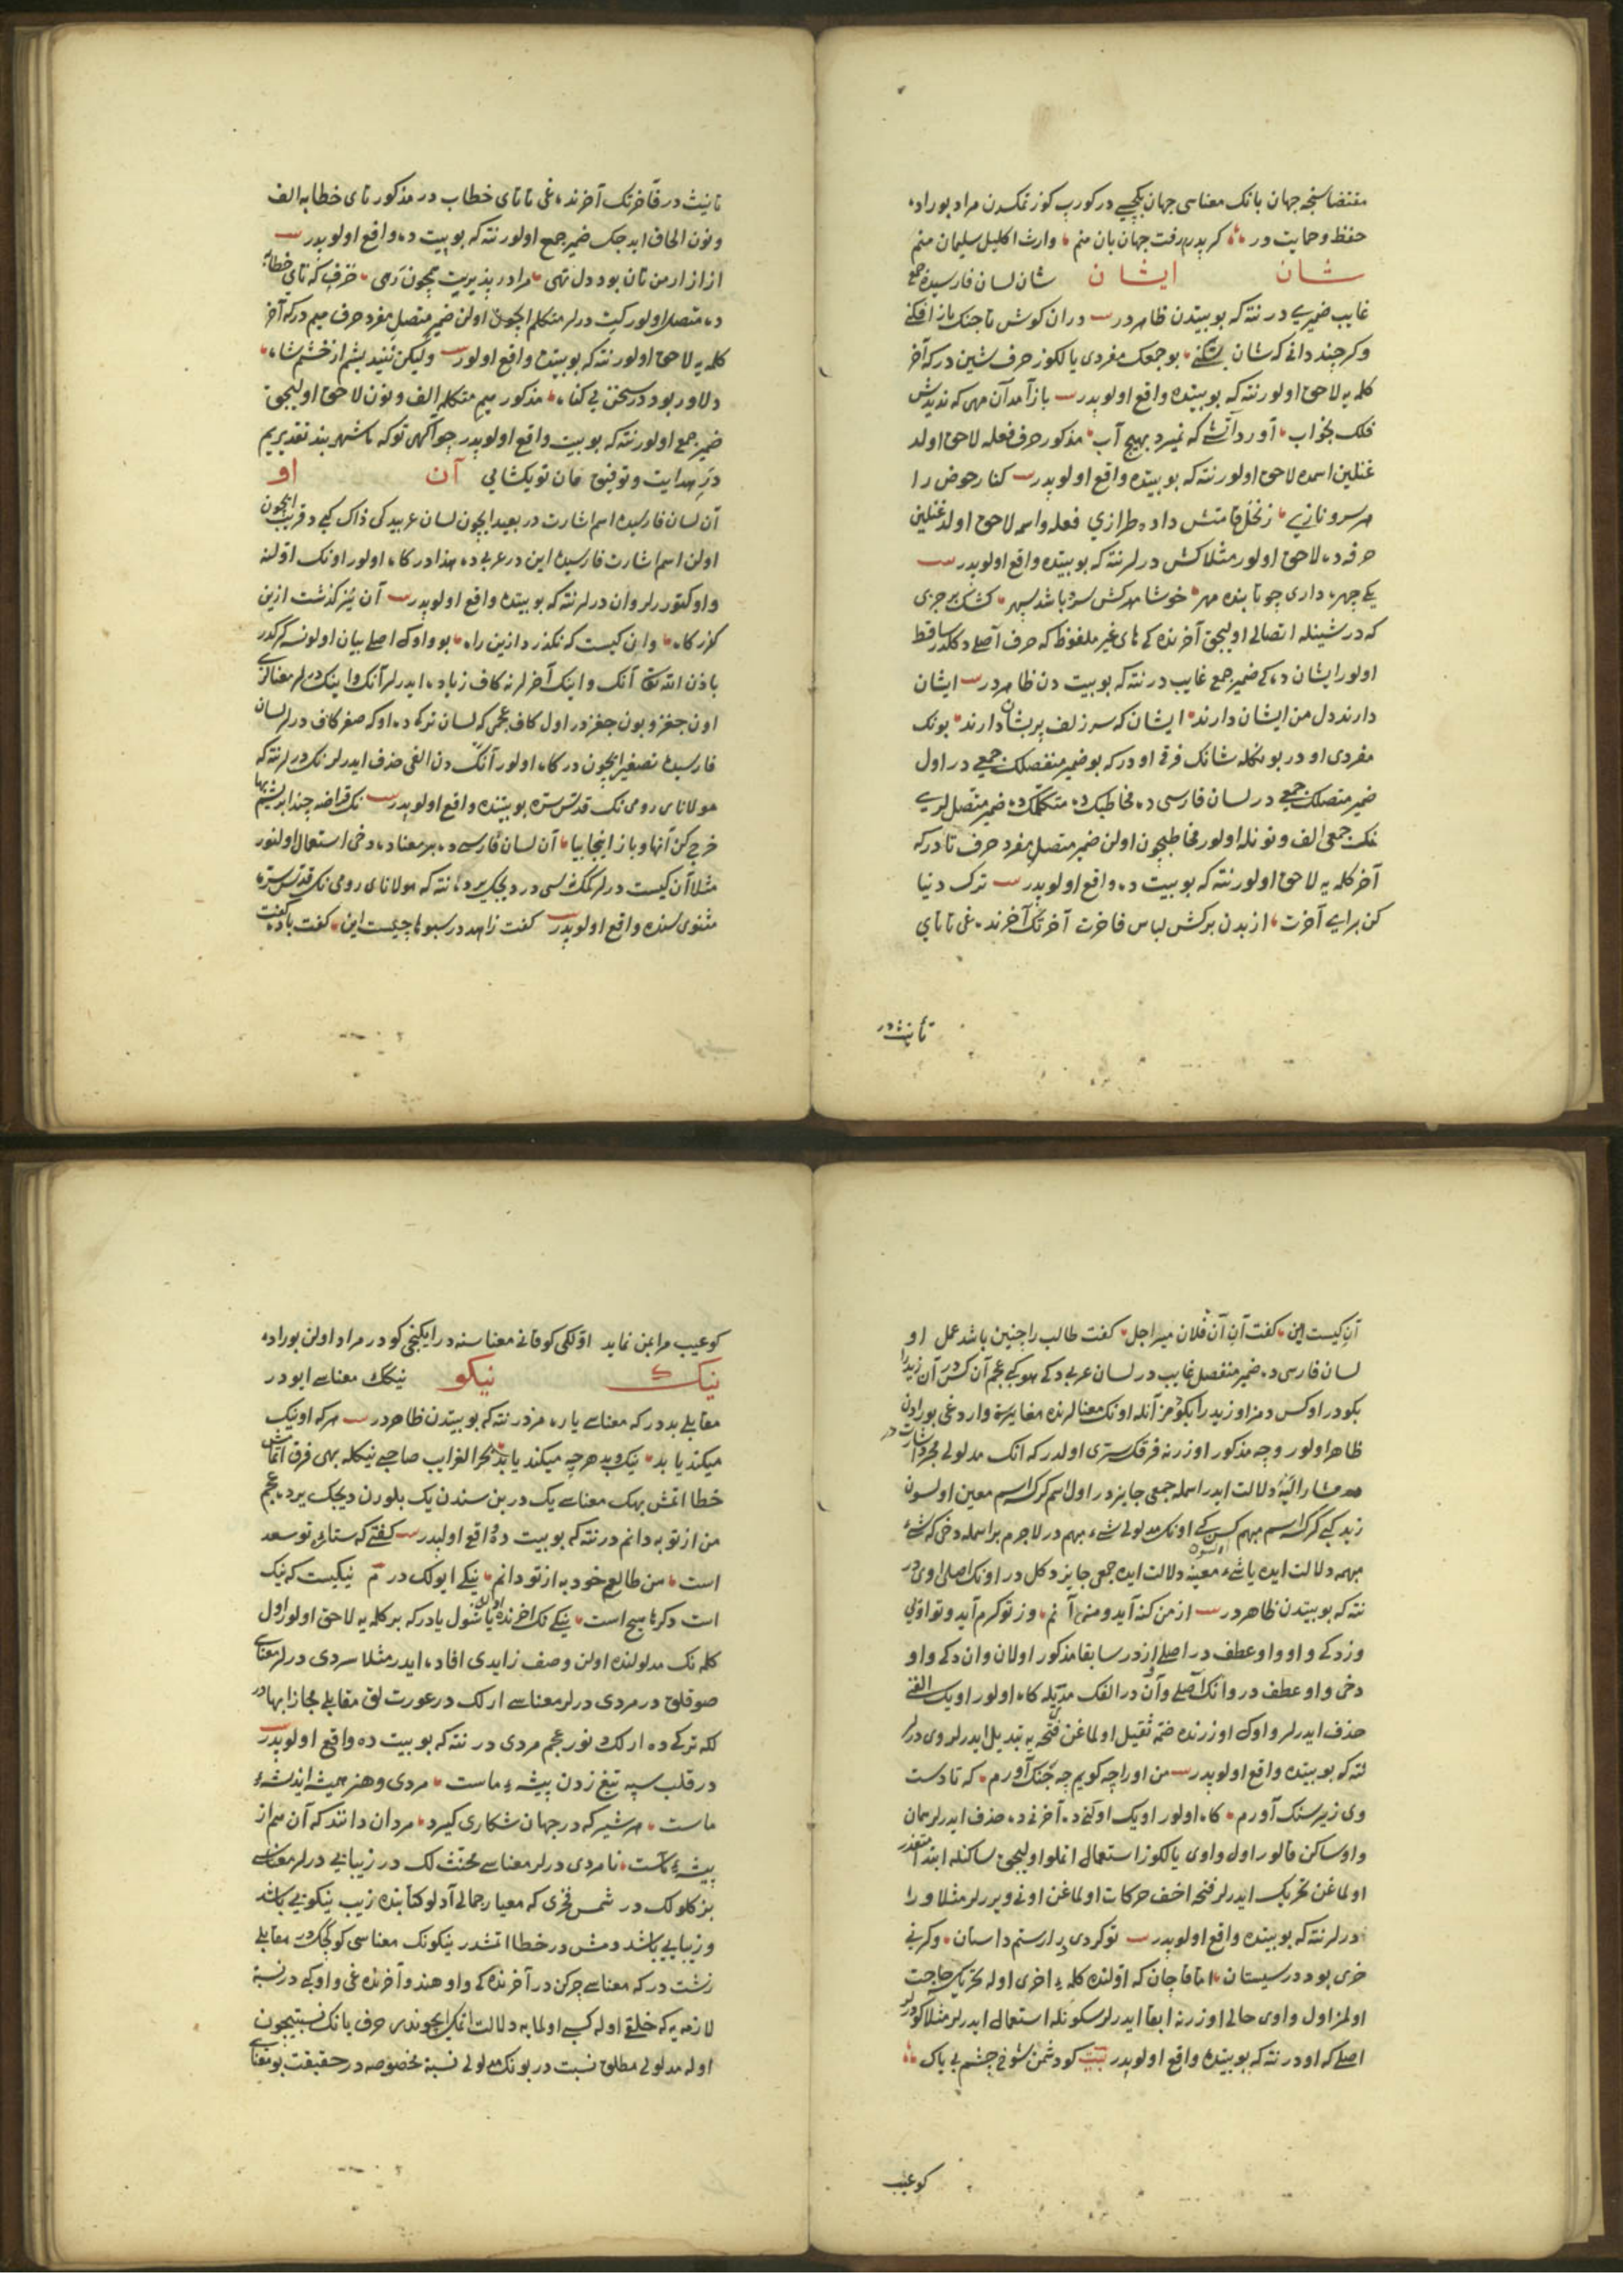 مقتضاسنجه جهان بانك معناسی جهان بكجیسی در كوروب كوزتمكدن مراد بوراده
حفظ و حمایت در كر پدرم رفت جهان بان منم وارث اكلیل سلیمان منم
شان ایشان شان لسان فارسیده جمع
غایب ضمیری در نته كه بو بیتدن ظاهر در دران كوش تا جنك باز افكنی
وكر چند دانی كه شان بشكنی بو جمعك مفردی یالكوز حرف شین در كه آخر
كلمه یه لاحق اولور نته كه بو بیتده واقع اولوبدر باز آمد آن مهی كه ندیدش
فلك بخواب آورد آتشی كه نمیرد بهیچ آب مذكور حرف فعله لاحق اولد
غنلین اسمه لاحق اولور نته كه بو بیتده واقع اولوبدر كنار حوض را
هر سرو نازی ز نخل قامتش داده طرازی فعله و اسمه لاحق اولدغنلین
حرفه ده لاحق اولور مثلا كش درلر نته كه بو بیتده واقع اولوبدر
یكی چهره داری چو تابنده مهر خوشا مهر كش سرو باشد سپهر
كه در شینله اتصالی اولیجق آخرنده كی های غیر ملفوظ كه حرف اصلی دكلدر ساقط
اولور ایشان ده كی ضمیر جمع غایب در نته كه بو بیت دن ظاهر در ایشان
دارند دل من ایشان دارند ایشان كه سر زلف پریشان دارند بونك
مفردی او در بو نكله شانك فرقی او در كه بو ضمیر منفصلك جمعی در اول
ضمیر متصلك جمعی در لسان فارسی ده مخاطبك ده متكلمك ده ضمیر متصللری
نك جمعی الف و نونله اولور مخاطبچون اولن ضمیر متصل مفرد حرف تا در كه
آخر كلمه یه لاحق اولور نته كه بو بیت ده واقع اولوبدر ترك دنیا
كن برای آخرت از بدن بركش لباس فاخرت آخرتك آخرنده غی تا تای
تأنیث در
تانیث در فاخرتك آخرنده غی تا تای خطاب در مذكور تای خطابه الف
و نون الحاق ایدیجك ضمیر جمع اولور نته كه بو بیت ده واقع اولوبدر
از ازار من تان بود دل تهی مرا در پذیریت همچون رهی حرف كه تای خطابه
ده متصل اولور كیت درلر متكلم ایچون اولن ضمیر متصل مفرد حرف میم در كه آخر
كلمه یه لاحق اولور نته كه بو بیتده واقع اولور ولیكن نیندیشم از خشم شاه
دلاور بود در سخن بی كناه مذكور میم متكلمه الف و نون لاحق اولیجق
ضمیر جمع اولور نته كه بو بیت واقع اولوبدر چو آكهی تو كه ما شهر بند تقدیریم
در هدایت و توفیق مان تو بكشایی آن او
آن لسان فارسیده اسم اشارت در بعید ایچون لسان عربیده كی ذاك كبی و قریب ایچون
اولن اسم اشارت فارسیده این در عربی ده هذا در كاه اولور اونك اولنه
واو كتوررلر وان درلر نته كه بو بیتده واقع اولوبدر آن نیز كذشت ازین
كذركاه وان كیست كه نكذرد ازین راه بو واوك اصلی بیان اولونسه كركدر
باذن الله تعالی آنك و اینك آخرلرنه كاف زیاده ایدرلر آنك و اینك درلر معنالری
اون جغز و بون جغز در اول كاف عجمی كه لسان تركی ده اوكه صغر كاف درلر لسان
فارسیده تصغیر ایچون در كاه اولور آنك دن الفی حذف ایدرلر نك درلر نته كه
مولانای رومی نك قدس سره بو بیتنده واقع اولوبدر نك قراضه چند ابریشم بها
خرج كن آنها و باز اینجا بیا آن لسان فارسی ده بر معناده دخی استعمال اولنور
مثلا آن كیست درلر كمك لسی در دیجك یرده نته كه مولانای رومی نك قدس سره
مثنوی سنده واقع اولوبدر كفت زاهد در سبوها چیست این كفت باده كفت
آن كیست این كفت آن آن فلان میر اجل كفت طالب را چنین باشد عمل او
لسان فارسی ده ضمیر منفصل غایب در لسان عربی ده كی هو كبی عجم آن كس در آن زید را
بكو در او كس دمز او زید را بكو دمز آنكله اونك معنالرنده مغایرة واردغی بورادن
ظاهر اولور وجه مذكور اوزرنه فرقك سرّی اولدر كه آنك مدلولی مجرد اشارت در
مشار الیه دلالت ایدر اسمله جمعی جایز در اول اسم كرك اسم معین اولسون
زید كبی كرك اسم مبهم كس كبی اونك مدلولی شیء مبهم در لاجرم بر اسمله دخی كه شیء
مبهمه دلالت ایده یا شیء معینه دلالت ایده جمعی جایز دكل در اونك اصلی اوی در
نته كه بو بیتدن ظاهر در از من كنه آید و منم آنم وز تو كرم آید و تو اویی
وزده كی واو واو عطف در اصلی از در سابقا مذكور اولان وان ده كی واو
دخی واو عطف در وانك اصلی و آن در الفك مدّیله كاه اولور اویك الفنی
حذف ایدرلر واوك اوزرنده ضمه ثقیل اولماغن فتحه یه تبدیل ایدرلر وی درلر
نته كه بو بیتده واقع اولوبدر من او را چه كویم چه جنك آورم كه تا دست
وی زیر سنك آورم كاه اولور اویك اولنی ده آخرنی ده حذف ایدرلر همان
واو ساكن قالور اول واوی یالكوز استعمال اتملو اولیجق ساكنله ابتدا متعذر
اولماغن تحریك ایدرلر فتحه اخف حركات اولماغن اونی ویررلر مثلا ورا
درلر نته كه بو بیتده واقع اولوبدر تو كردی ورا رستم داستان وكرنی
خری بود در سیستان اما قاچان كه اولنده كلمه اخری اوله تحریك حاجت
اولمز اول واوی حالی اوزرنه ابقا ایدرلر سكونله استعمال ایدرلر مثلا كو درلر
اصلی كه او در نته كه بو بیتده واقع اولوبدر بیت كو دشمن شوخ چشم بی باك
كو عیب
كو عیب مرا بمن نماید اولكی كو قانی معناسنه در ایكنجی كو در مراد اولن بوراده
نیك نیكو نیكك معناسی ایو در
مقابلی بد در كه معناسی یارامز در نته كه بو بیتدن ظاهر در هر كه او نیك
میكند یابد نیك و بد هر چه میكند یابد بحر الغرایب صاحبی نیكله بهی فرق اتمامش
خطا اتمش بهك معناسی یك در بن سندن یك بلورن دیجك یرده عجم
من از تو به دانم در نته كه بو بیت ده واقع اولبدر كفتی كه ستاره تو سعد
است من طالع خود به از تو دانم نیكی ایولك در نیكیست كه نیك
است دكرها هیچ است نیكی نك اخرنده اولان یا شول یادر كه بر كلمه یه لاحق اولور اول
كلمه نك مدلولنده اولن وصف زایدی افاده ایدر مثلا سردی درلر معناسی
صوقلق در مردی درلر معناسی ارلك در عورت لق مقابلی مجازا بهادر
لكه تركی ده ارلك دنور عجم مردی در نته كه بو بیت ده واقع اولوبدر
در قلب سپه تیغ زدن پیشه ماست مردی و هنر همیشه اندیشه
ماست هر شیر كه در جهان شكاری كیرد مردان دانند كه آن هم از
بیشه ماست نامردی درلر معناسی مخنث لك در زیبایی درلر معناسی
بزكلولك در شمس فخری كه معیار جمالی آدلو كتابنده زیب نیكویی باشد
و زیبایی باشد دمش در خطا اتمشدر نیكونك معناسی كوكچك در مقابلی
زشت در كه معناسی چركن در آخرنده كی واو هندو آخرنده غی واو كبی در نسبة
لازمه یه كه خلقی اوله كسبی اولمایه دلالت اتمك ایچوندر حرف یا نك نسبتیچون
اوله مدلولی مطلق نسبت در بونك مدلولی نسبة مخصوصه در حقیقت بو معنای